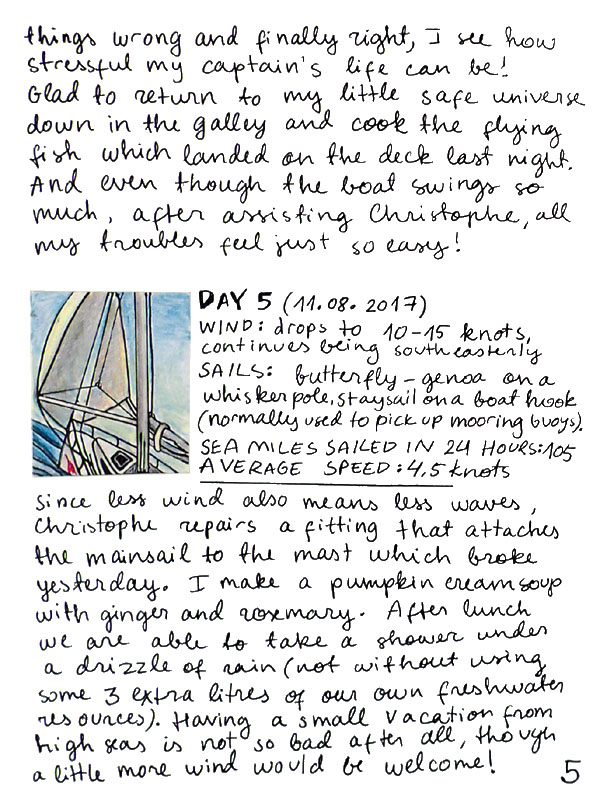 things wrong and finally right, I see how
stressful my captain's life can be!
Glad to return to my little safe universe
down in the galley and cook the flying
fish which landed on the deck last night.
And even though the boat swings so
much, after assisting Christophe, all
my troubles feel just so easy!
DAY 5 (11.08.2017)
WIND: drops to 10-15 knots,
continues being southeasterly
SAILS: butterfly - genoa on a
whiskerpole, staysail on a boat hook
(normally used to pick up mooring buoys).
SEA MILES SAILED IN 24 HOURS: 105
AVERAGE SPEED: 4,5 knots
Since less wind also means less waves,
Christophe repairs a fitting that attaches
the mainsail to the mast which broke
yesterday. I make a pumpkin creamsoup
with ginger and rosemary. After lunch
we are able to take a shower under
a drizzle of rain (not without using
some 3 extra litres of our own freshwater
resources). Having a small vacation from
high seas is not so bad after all, though
a little more wind would be welcome!
5